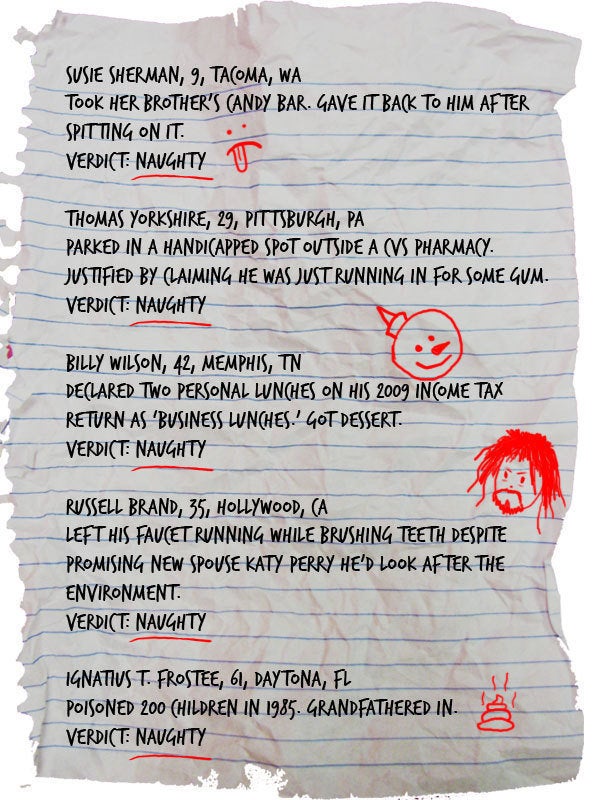 SUSIE SHERMAN, 9, TACOMA, WA
TOOK HER BROTHER'S CANDY BAR. GAVE IT BACK TO HIM AFTER
SPITTING ON IT.
VERDICT: NAUGHTY
THOMAS YORKSHIRE, 29, PITTSBURGH, PA
PARKED IN A HANDICAPPED SPOT OUTSIDE A CVS PHARMACY.
JUSTIFIED BY CLAIMING HE WAS JUST RUNNING IN FOR SOME GUM.
VERDICT: NAUGHTY
BILLY WILSON, 42, MEMPHIS, TN
DECLARED TWO PERSONAL LUNCHES ON HIS 2009 INCOME TAX
RETURN AS 'BUSINESS LUNCHES.' GOT DESSERT.
VERDICT: NAUGHTY
RUSSELL BRAND, 35, HOLLYWOOD, CA
LEFT HIS FAUCET RUNNING WHILE BRUSHING TEETH DESPITE
PROMISING NEW SPOUSE KATY PERRY HE'D LOOK AFTER THE
ENVIRONMENT.
VERDICT: NAUGHTY
IGNATIUS T. FROSTEE, 61, DAYTONA, FL
POISONED 200 CHILDREN IN 1985. GRANDFATHERED IN.
VERDICT: NAUGHTY